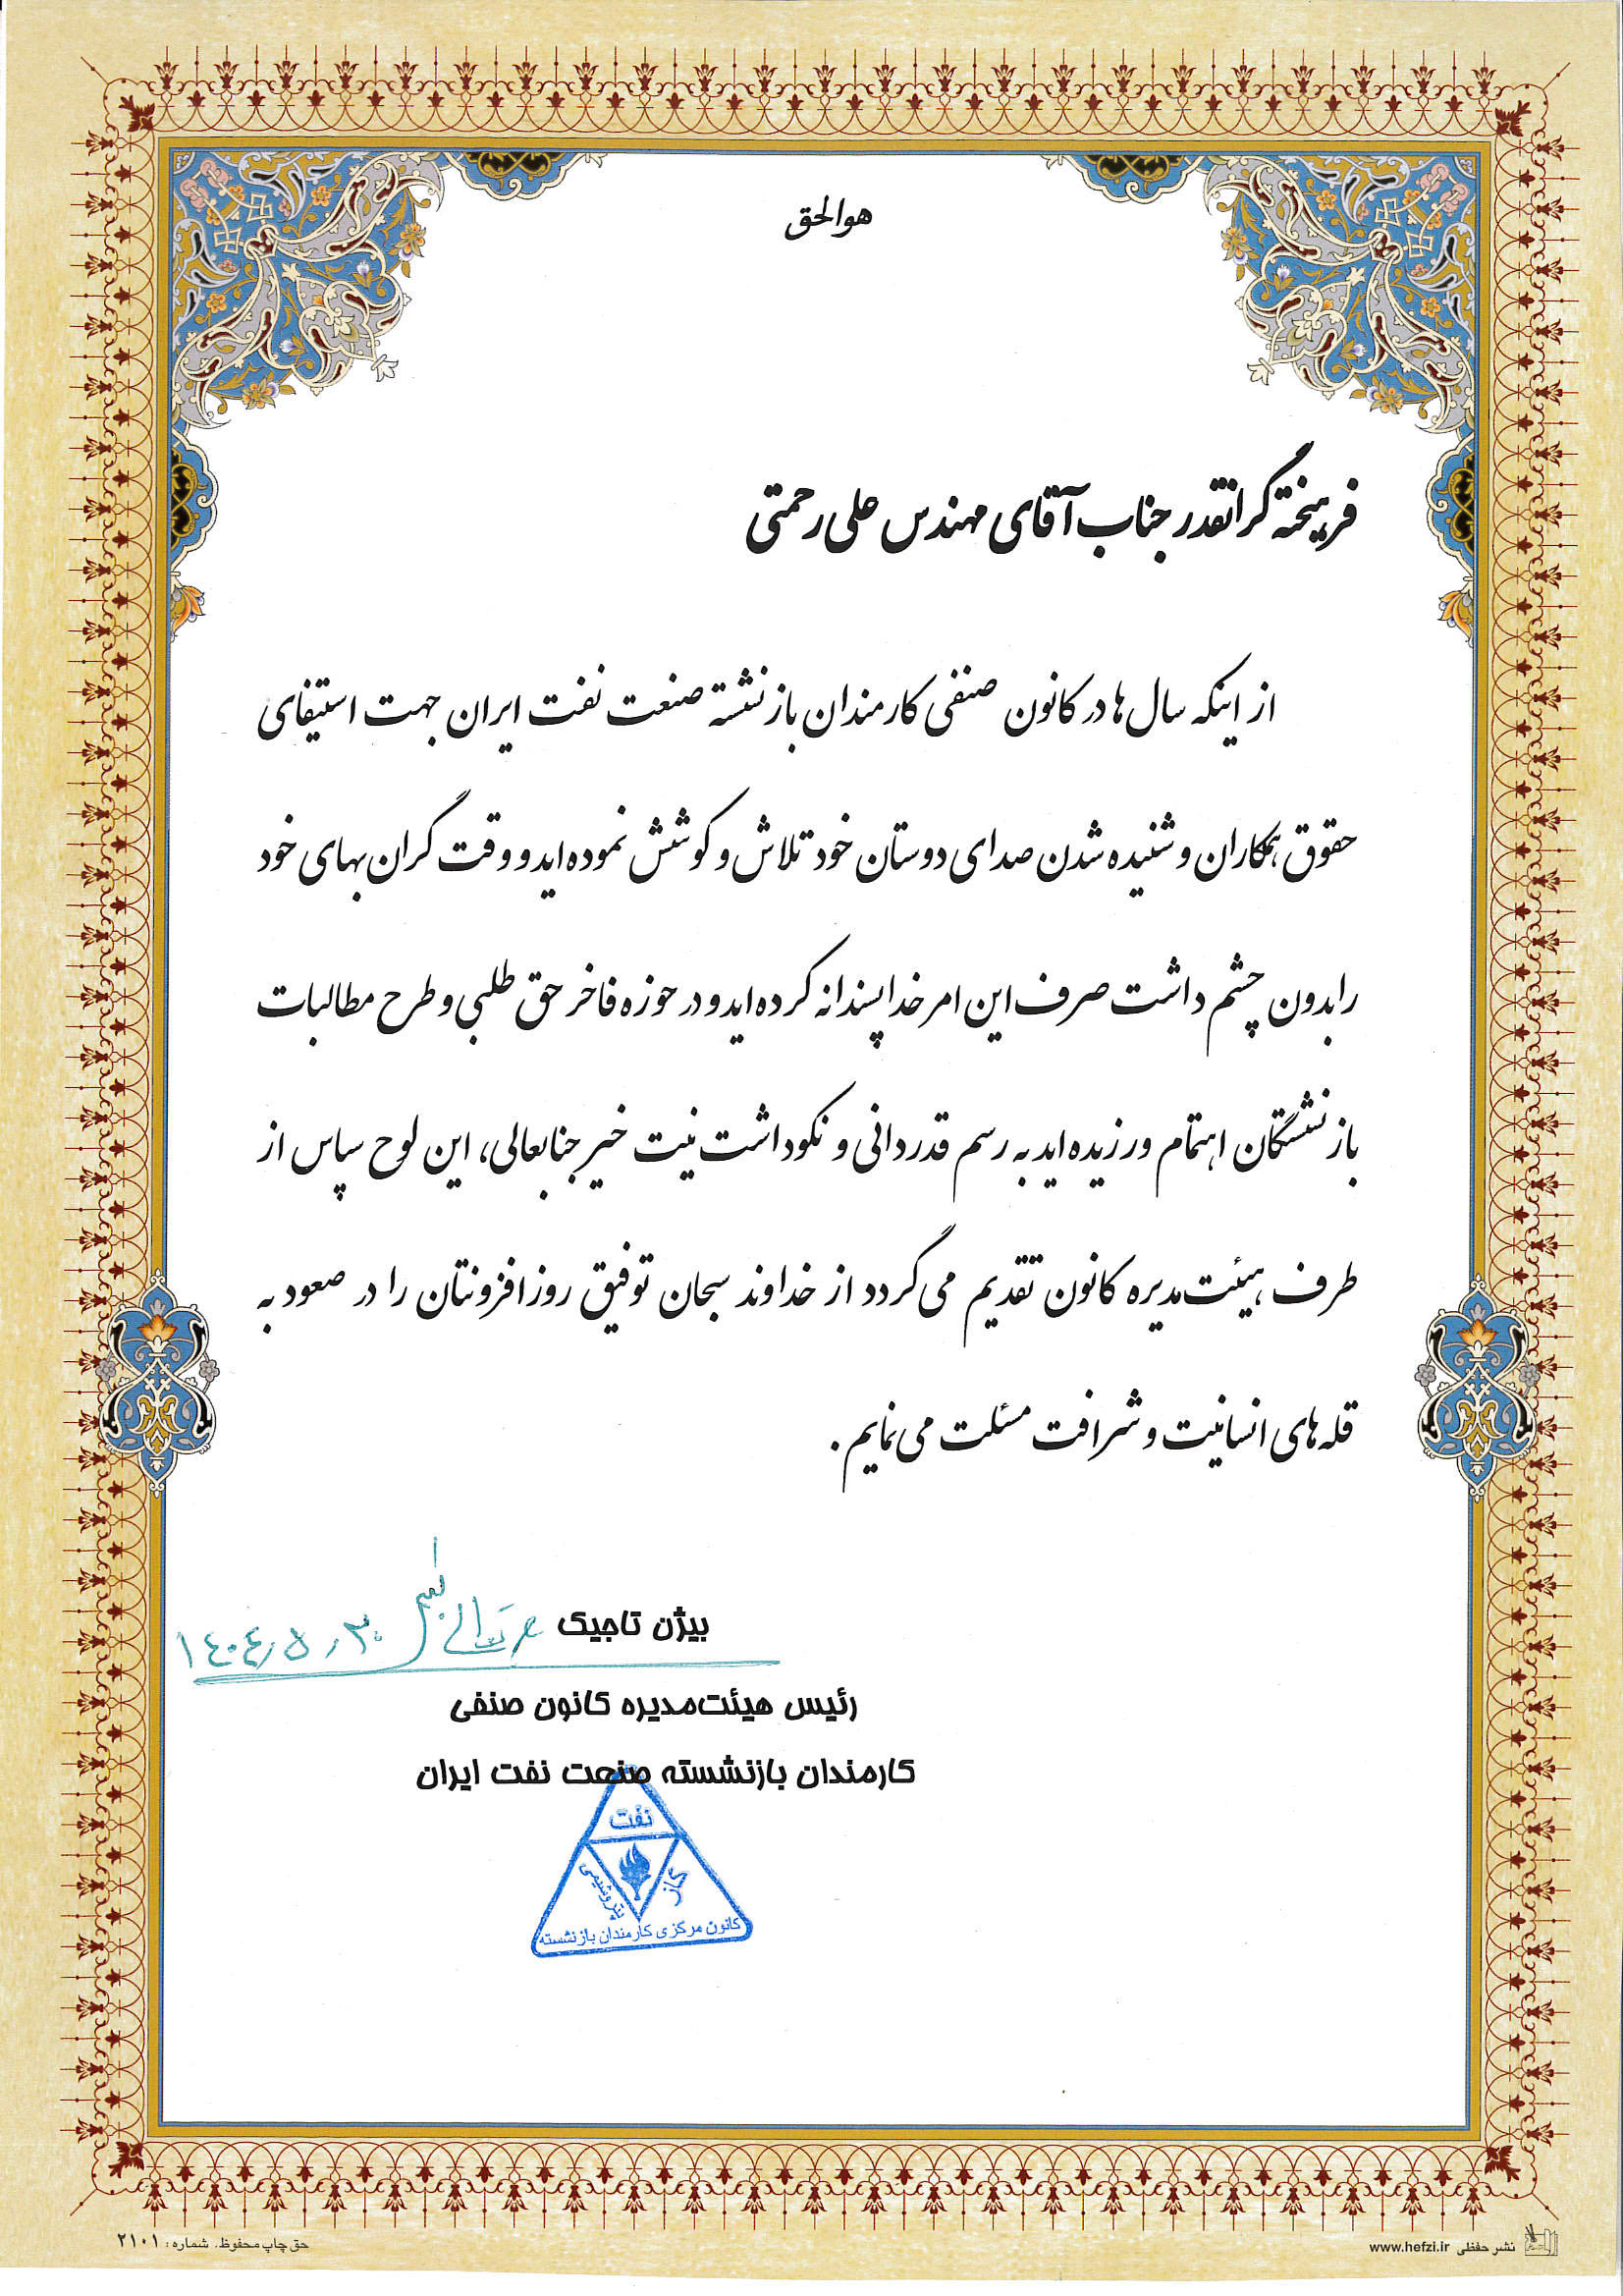 هوالحق
فرهیخته گرانقدر جناب آقای مهندس علی رحمتی
از اینکه سال ها در کانون صنفی کارمندان بازنشسته صنعت نفت ایران جهت استیفای
حقوق همکاران و شنیده شدن صدای دوستان خود تلاش و کوشش نموده اید و وقت گران بهای خود
را بدون چشم داشت صرف این امر خداپسندانه کرده اید و در حوزه فاخر حق طلبی و طرح مطالبات
بازنشستگان اهتمام ورزیده اید به رسم قدردانی و نکوداشت نیت خیر جنابعالی، این لوح سپاس از
طرف هیئت‌مدیره کانون تقدیم می‌گردد از خداوند سبحان توفیق روزافزونتان را در صعود به
قله‌های انسانیت و شرافت مسئلت می‌نمایم.
بیژن تاجیک
۱۴۰۴٫۵٫۳۰
رئیس هیئت‌مدیره کانون صنفی
کارمندان بازنشسته صنعت نفت ایران
نفت
گاز
پتروشیمی
کانون مرکزی کارمندان بازنشسته
نشر حفظی www.hefzi.ir
حق چاپ محفوظ. شماره: ۲۱۰۱